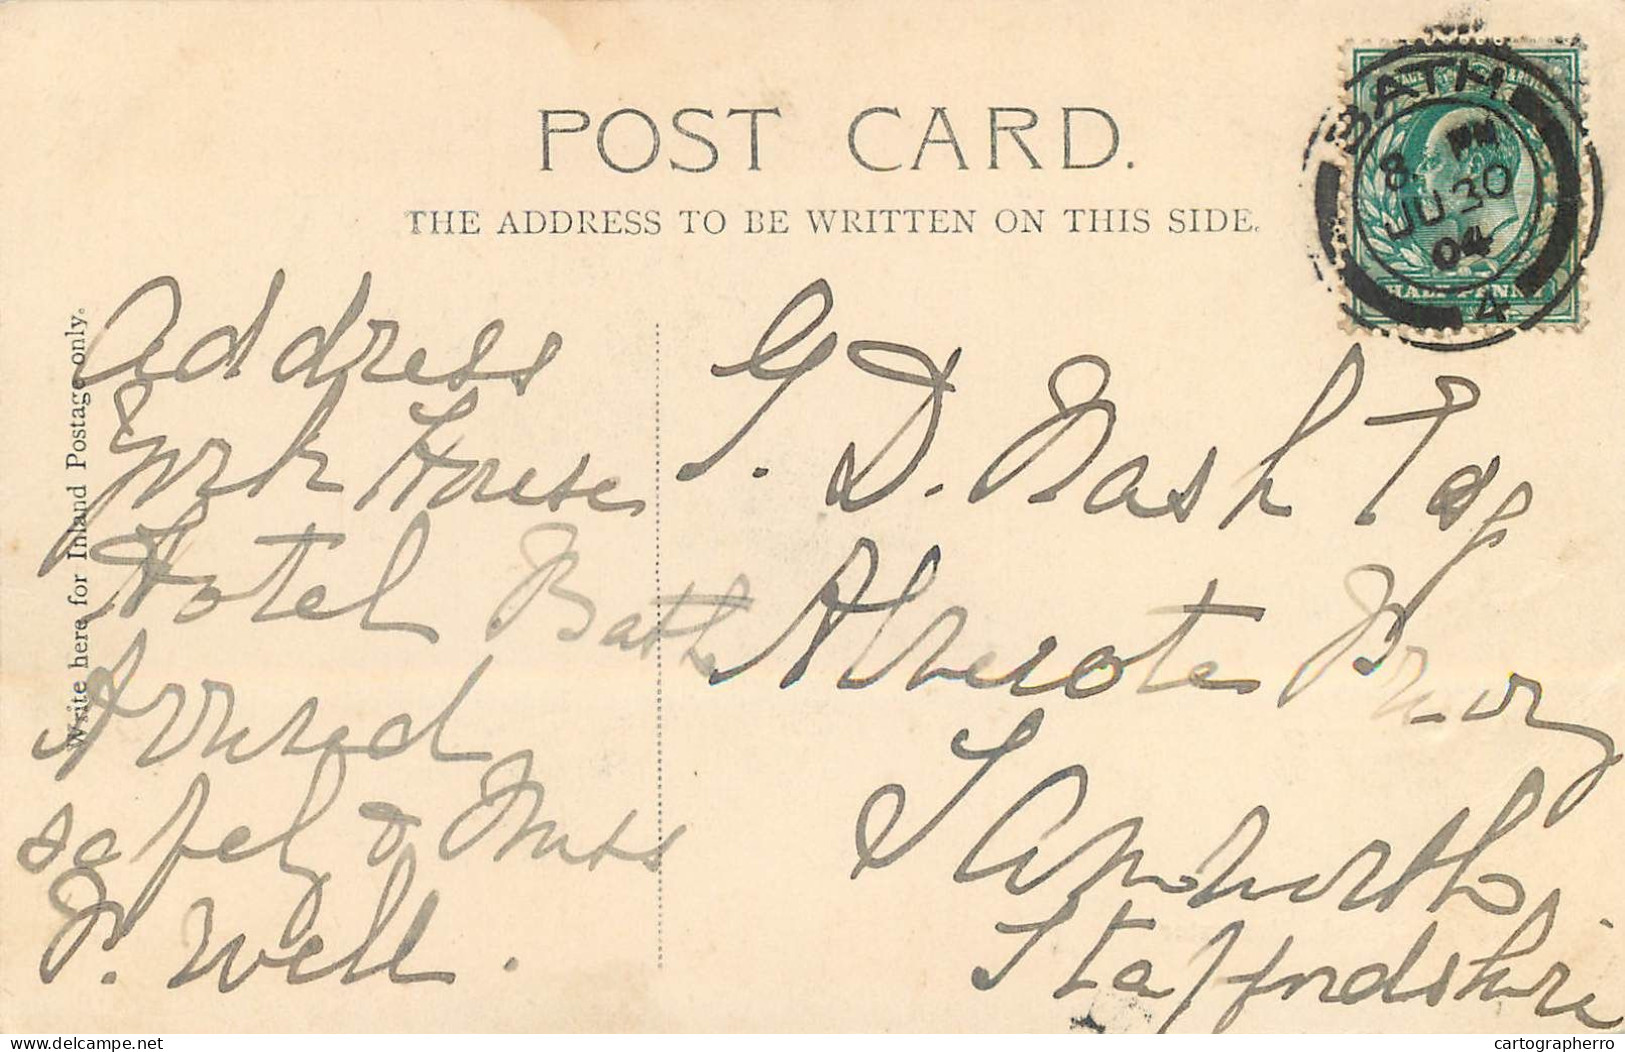 POST CARD.
THE ADDRESS TO BE WRITTEN ON THIS SIDE.
Write here for Inland Postage only.
BATH
8. PM
JU 30
04
4
HALF PENNY
Address
York House
Hotel Bath
Arrived
safely &
F. Well.
G. D. Nash
Alvecote Priory
Tamworth
Staffordshire
delcampe.net
cartographerro